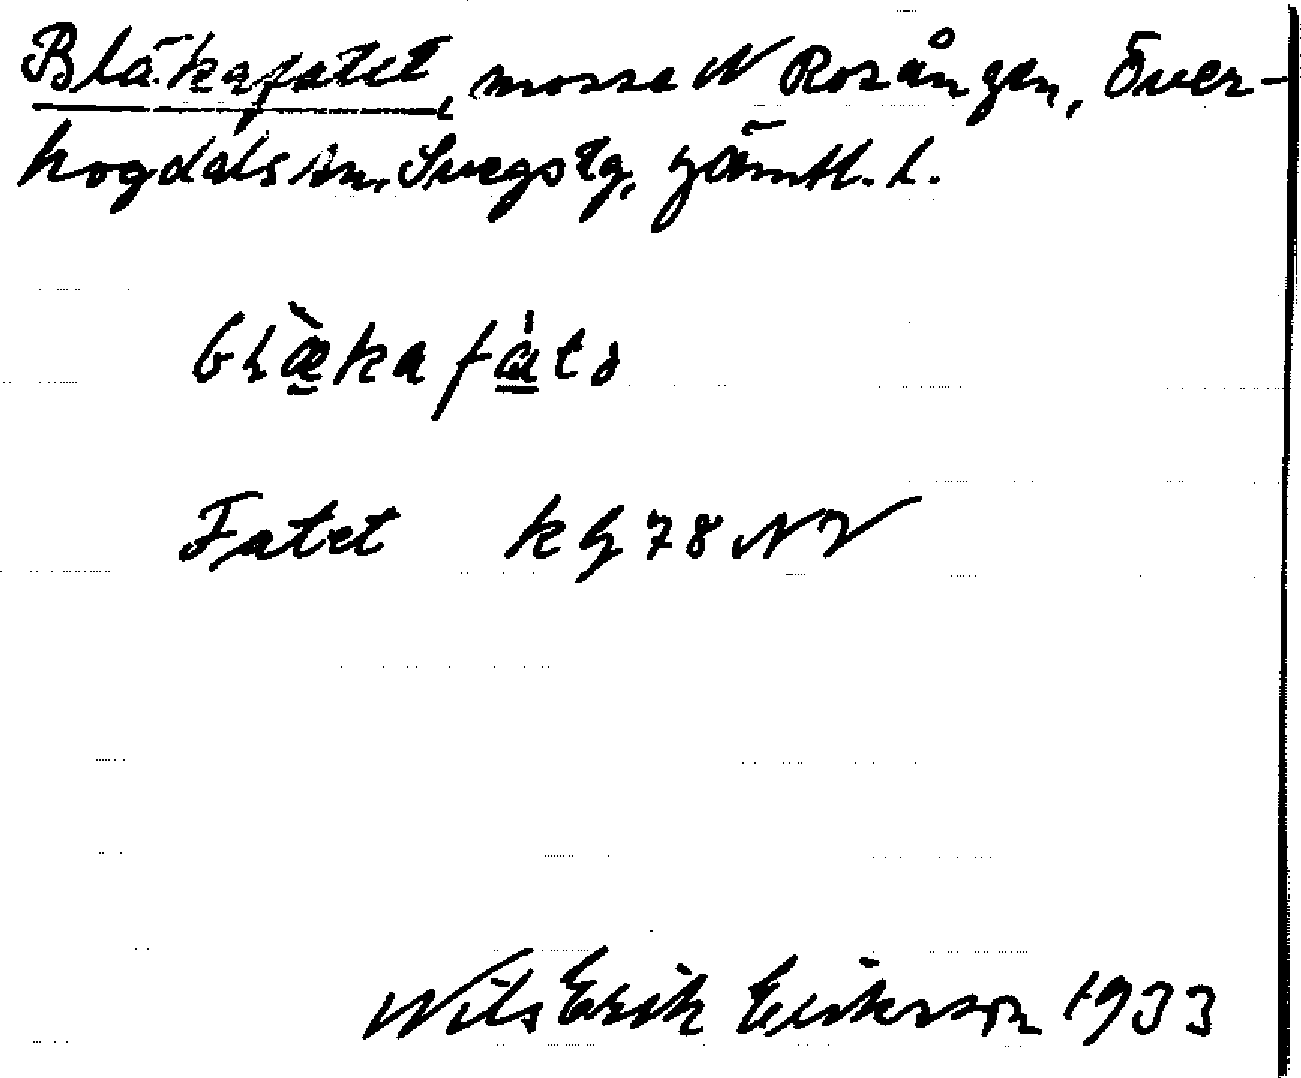 Bläkafatet, mossa N Rosången, Över-
hogdals sn, Svegs tg, Jämtl. l.
blæ̀kafátə
Fatet kg 78 NV
Nils Erik Eriksson 1933